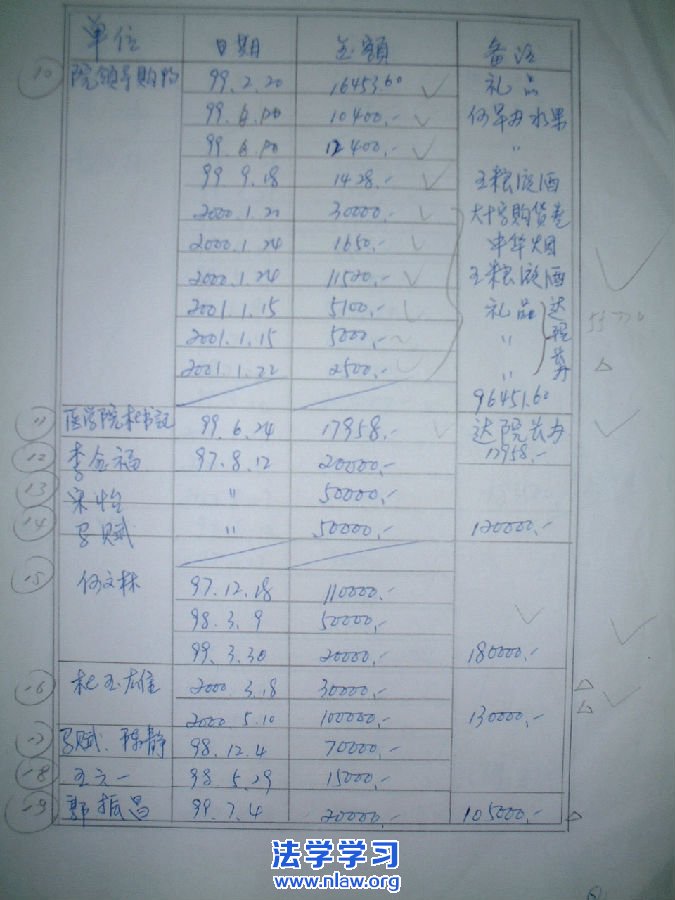 单位 日期 金额 备注
10 院领导购物 99.2.20 16453.60 礼品
99.6. 10400.- 水果
99.6. 12400.- "
99 9.18 1428.- 五粮液酒
2000.1.21 30000.- 大十字购货
2000.1.24 1650.- 中华烟
2000.1.24 11520.- 五粮液酒
2001.1.15 5100.- 礼品 送
2001.1.15 5000.- " 院
2001.1.22 2500.- " 长办
96451.60
11 医学院 书记 99.6.24 17958.- 送院长办
17958.-
12 李金福 97.8.12 20000.-
13 宋怡 " 50000.-
14 马赋 " 50000.- 120000.-
15 何文林 97.12.18 110000.-
98.3.9 50000.-
99.3.30 20000.- 180000.-
16 杜玉雄 2000 3.18 30000.-
2000.5.10 100000.- 130000.-
17 马赋、陈静 98.12.4 70000.-
18 王立一 98.5.29 15000.-
19 郭振昌 99.7.4 20000.- 105000.-
法学学习
www.nlaw.org